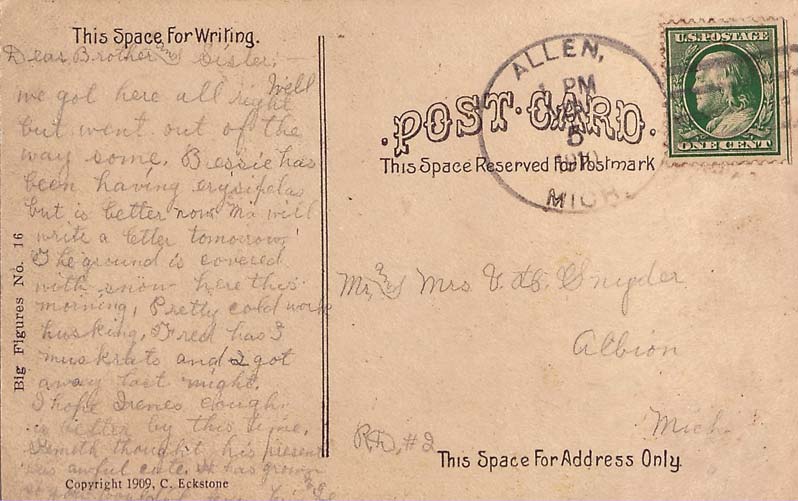 This Space For Writing.
Dear Brother and Sister: –
Well
we got here all right
but went out of the
way some. Bessie has
been having erysipelas
but is better now. Ma will
write a letter tomorrow.
The ground is covered
with snow here this
morning. Pretty cold work
husking. Fred has 3
muskrats and 2 got
away last night.
I hope Irenes cough
is better by this time.
thought his present
was awful cute. It has grown
Big Figures No. 16
Copyright 1909, C. Eckstone
ALLEN,
PM
5
MICH.
U.S. POSTAGE
ONE CENT
POST CARD.
This Space Reserved for Postmark
Mr. and Mrs V. D. Snyder
Albion
Mich.
RD, #2
This Space For Address Only.